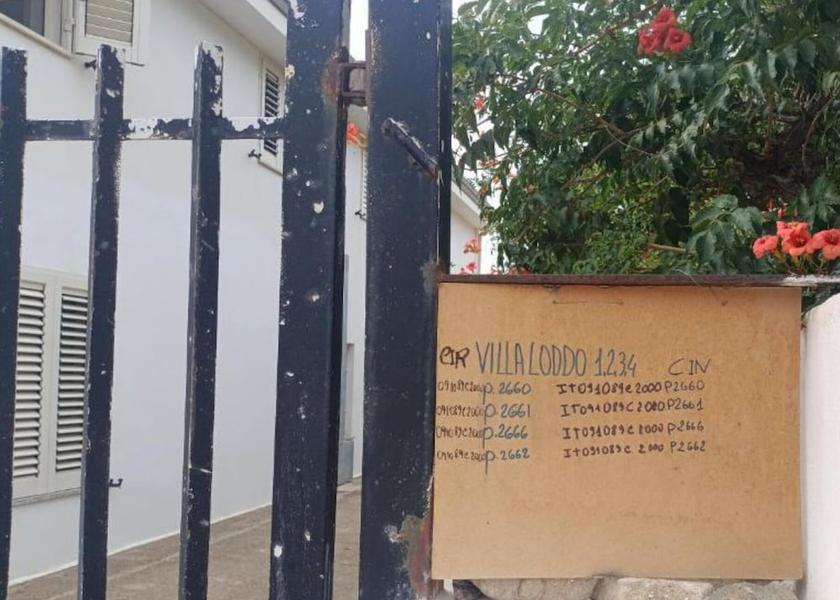 CIR VILLA LODDO 1,2,3,4 CIN
091089C2000p.2660 IT091089C2000P2660
091089C2000p.2661 IT091089C2000P2661
091089C2000p.2666 IT091089C2000P2666
091089C2000p.2662 IT091089C2000P2662